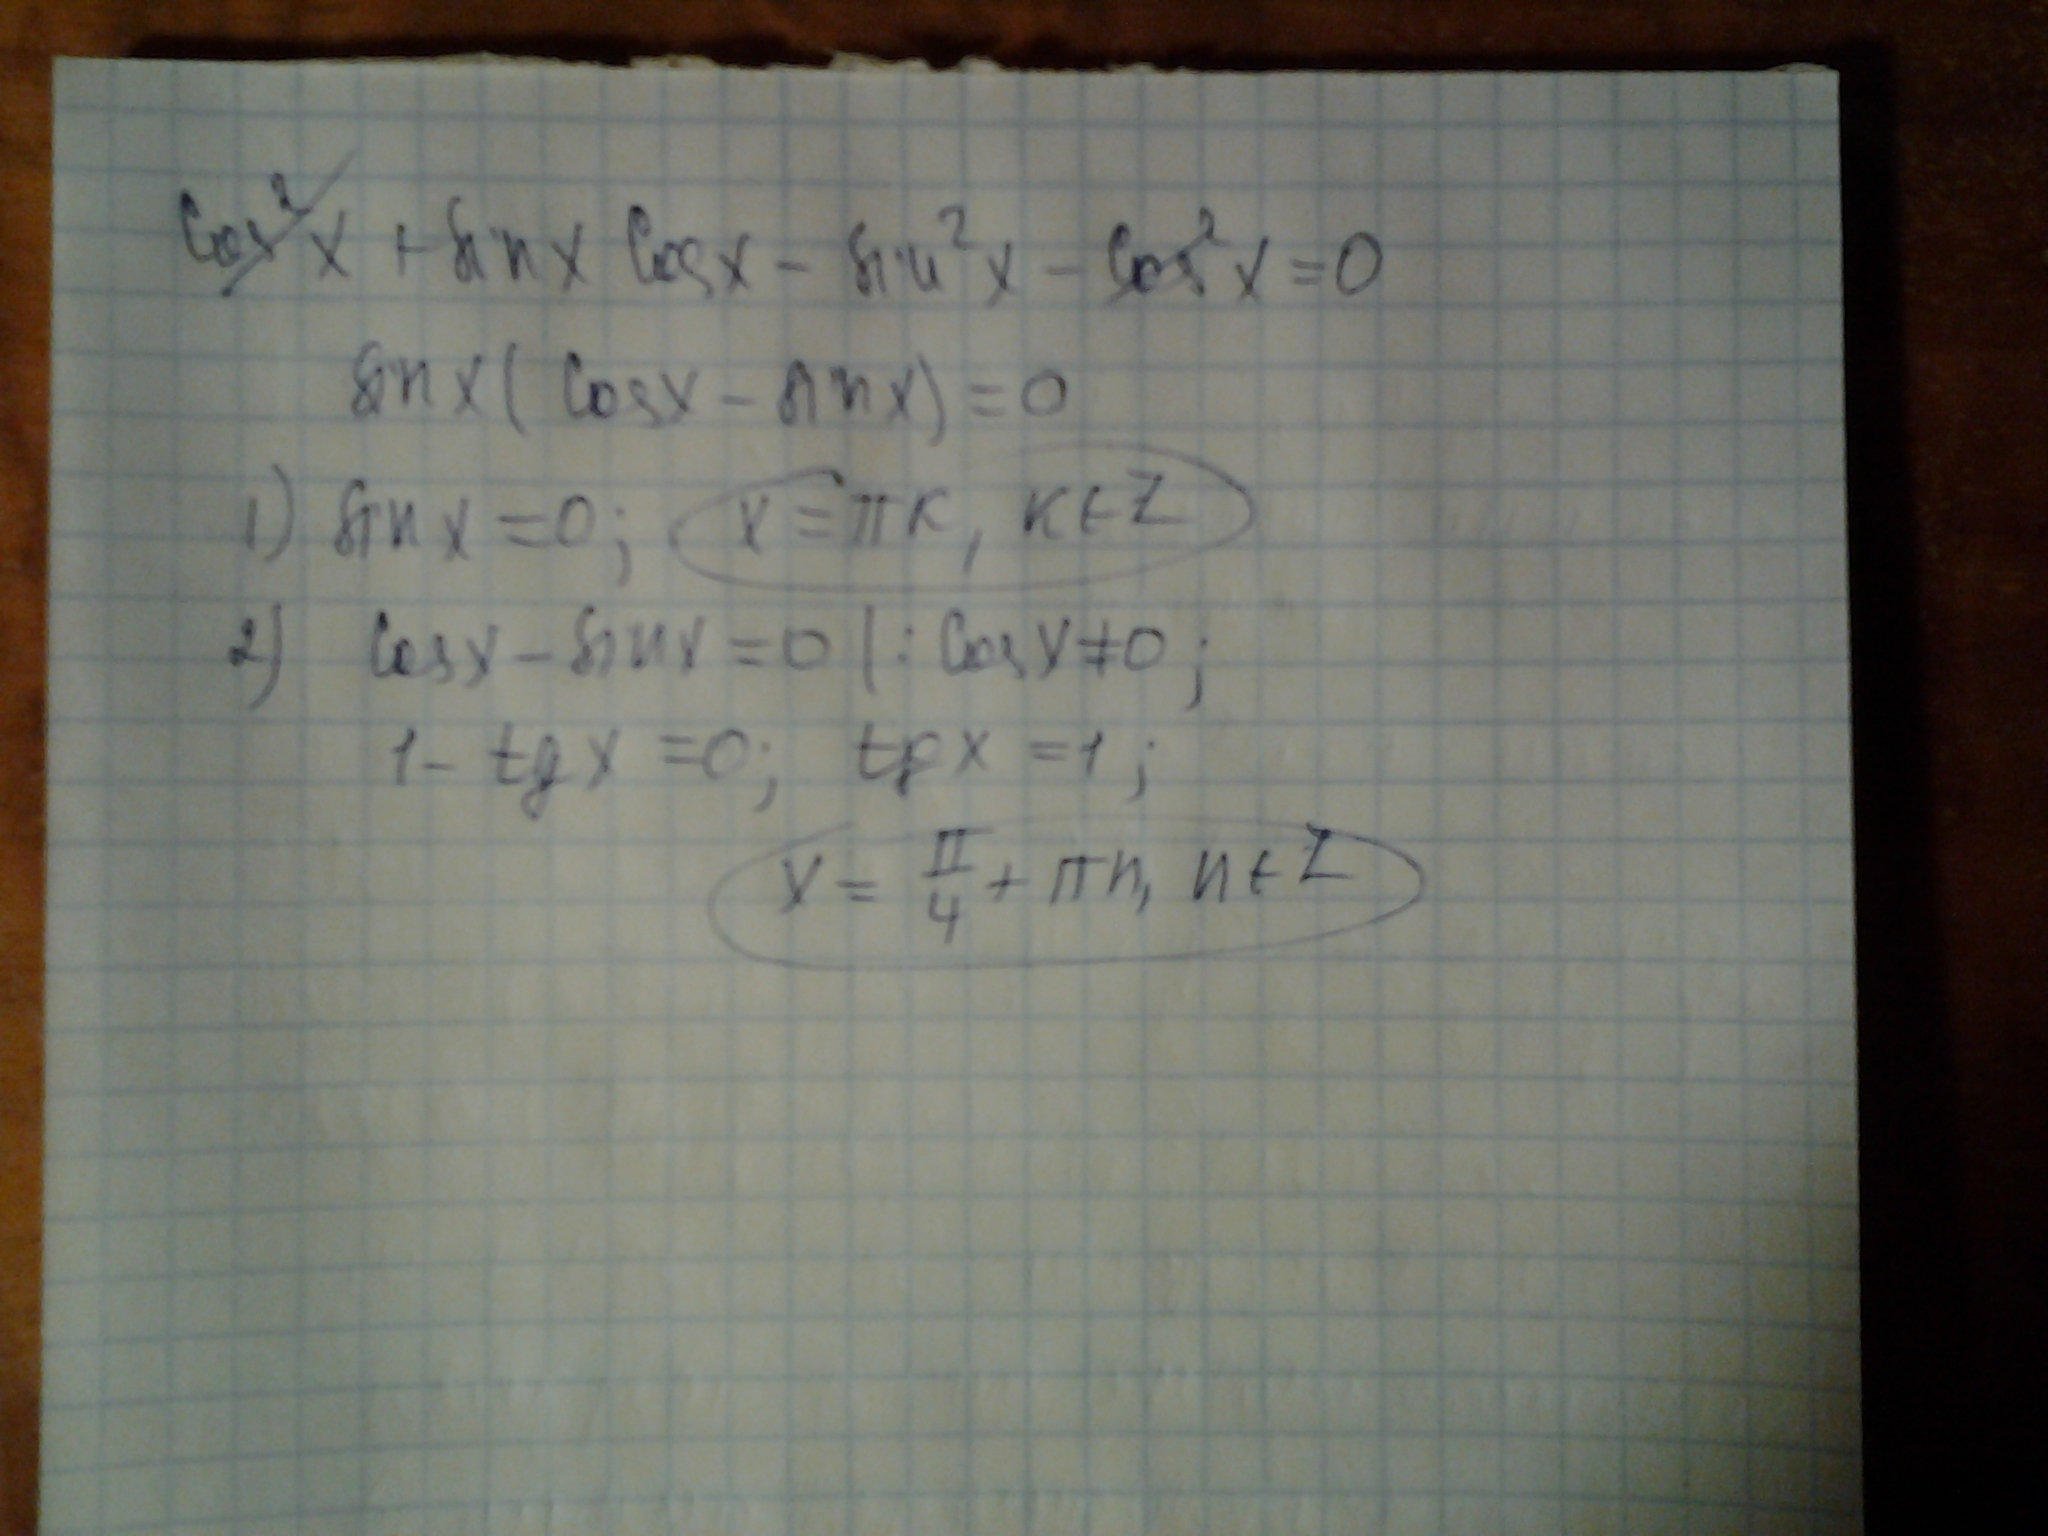 cos²x + sinx cosx - sin²x - cos²x = 0
sinx(cosx - sinx) = 0
1) sinx = 0; x = πк, к∈Z
2) cosx - sinx = 0 |: cosx ≠ 0;
1 - tgx = 0; tgx = 1;
x = π/4 + πn, n∈Z